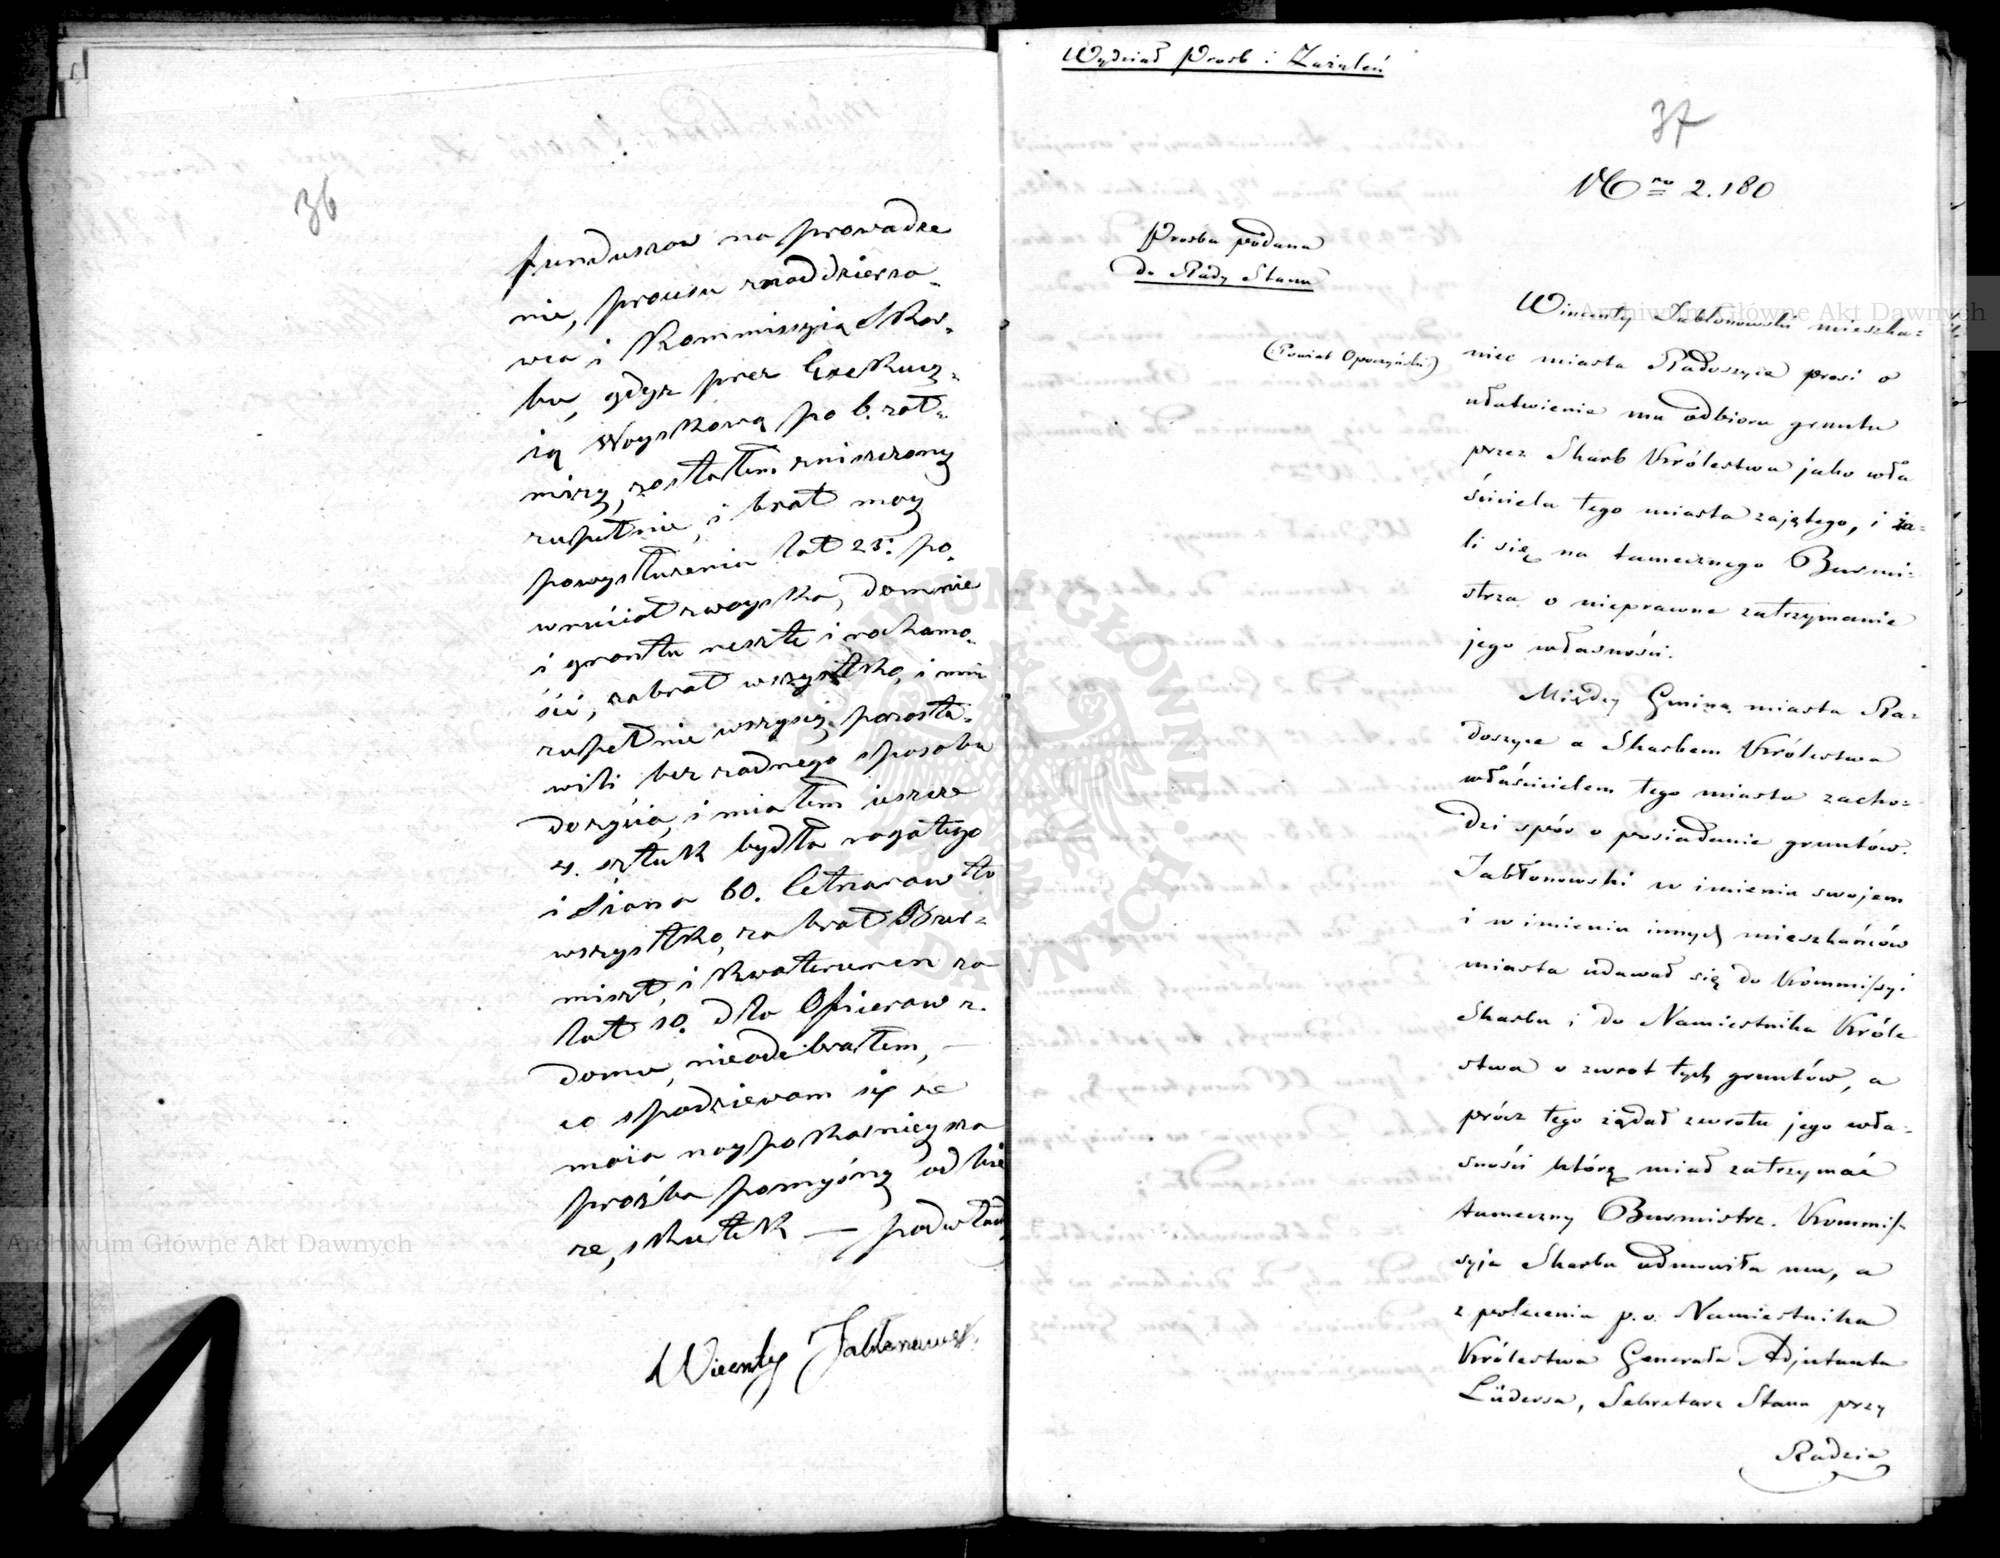 36
funduszow na prowadze
nie, procesu znaddzierza-
wca i Kommissyią Skar-
bu, gdyz przez Exekucz-
ią Woyskową po b. rat-
miszy, zostałem zniszczony
zupełnie, i brat moy
powysłuzeniu lat 25. po-
wrucił zwoyska, dom mie
i grontu reszte i rochomo-
ści, zabrał wszystko, i my
zupełnie wszyscy pozosta-
wili bez zadnego sposobu
dozycia, i miałem ieszcze
4. sztuk bydła rogatego
i Siana 60. Cetnarow to
wszystko, zabrał Bur-
mistż, i kwaterunek za
lat 10. dla Oficerow z.
domu, nieodebrałem, —
co spodziewam się ze
moia naypokorniey sza
prośba pomyśny odbie
rze, skutek — podwład
Wicenty Jabłonowsk.
Wydział Prosb i Zażaleń
37
Nro 2.180
Prośba podana
do Rady Stanu
(Powiat Opoczyński)
Wincenty Jabłonowski mieszka-
niec miasta Radoszyce prosi o
ułatwienie mu odbioru gruntu
przez Skarb Królestwa jako wła
ściciela tego miasta zajętego, i ża-
li się na tamecznego Burmi-
strza o nieprawne zatrzymanie
jego własności.
Między Gminą miasta Ra-
doszyce a Skarbem Królestwa
właścicielem tego miasta zacho-
dzi spór o posiadanie gruntów.
Jabłonowski w imieniu swojem
i w imieniu innych mieszkańców
miasta udawał się do Kommissyi
Skarbu i do Namiestnika Króle
stwa o zwrot tych gruntów, a
prócz tego żądał zwrotu jego wła-
sności którą miał zatrzymać
tameczny Burmistrz. Kommis-
syja Skarbu odmówiła mu, a
z polecenia p.o. Namiestnika
Królestwa Generała Adjutanta
Lüdersa, Sekretarz Stanu przy
Radzie
Archiwum Główne Akt Dawnych
Archiwum Główne Akt Dawnych
ARCHIWUM GŁÓWNE AKT DAWNYCH